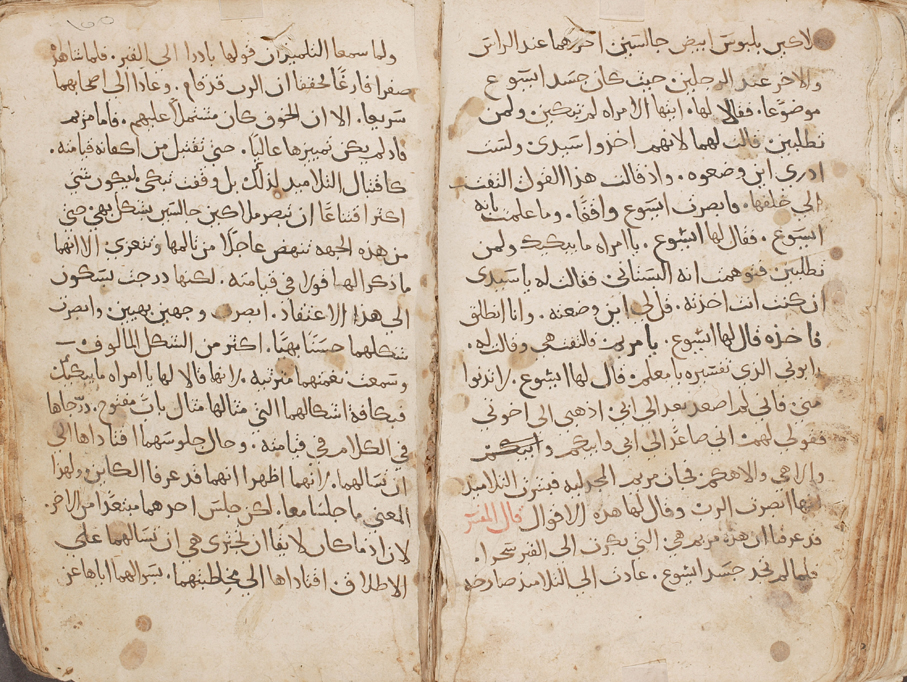 ملاكين بلبوس ابيض جالسين احدهما عند الراس
والاخر عند الرجلين حيث كان جسد ايسوع
موضوعا. فقالا لها. ايتها الامراه لم تبكين. ولمن
تطلبين قالت لهما لانهم اخذوا سيدي ولست
ادري اين وضعوه. واذ قالت هذا القول التفتت
الي خلفها. وابصرت ايسوع واقفا. وما علمت بانه
ايسوع. فقال لها ايسوع. يا امراه ما يبكيك ولمن
تطلبين فتوهمت انه البستاني فقالت له يا سيدي
ان كنت انت اخذته. قل لي اين وضعته. وانا انطلق
فاخذه قال لها ايسوع. يا مريم فالتفتت هي وقالت له.
رابوني الذي تفسيره يا معلم. قال لها ايسوع. لا تدنوا
مني فاني لم اصعد بعد الي ابي اذهبي الي اخوتي
فقولي لهم اني صاعد الي ابي وابيكم
والاهي والاهكم فجات مريم المجدليه فبشرت التلاميد
انها ابصرت الرب وقال لها هذه الاقوال قال المفسر
قد عرفنا ان هذه مريم هي التي بكرت الي القبر سحرا.
فلما لم تجد جسد ايسوع. عادت الي التلاميد صارخه
ولما سمعا التلميدان قولها بادرا الي القبر. فلما شاهدا
صفرا فارغا تحققا ان الرب قد قام. وعادا الي اصحابهما
سريعا. الا ان الخوف كان مشتملا عليهم. فاما مريم
فاد لم يكن تمييزها عاليا. حتي تقتبل من اكفانه قيامته.
كاقتبال التلاميد لذلك بل وقفت تبكي ليكون شي
اكثر اقناعا ان تبصر ملاكين جالسين بشكل بهي حتي
من هذه الجهه تنهض عاجلا من تالمها وتتعزي الا انهما
ما ذكرا لها قولا في قيامته. لكنها درجت بسكون
الي هذا الاعتقاد. ابصرت وجهين بهيين وابصرت
شكلهما حسنا بهيا. اكثر من الشكل المالوف
وسمعت نغمتهما مترتبه. لانها قالا لها يا امراه ما يبكيك
فبكافة اشكالهما التي مثالها مثال باب مفتوح. درجاها
في الكلام في قيامته. وحال جلوسهما اقتاداها الي
ان تسالهما. لانهما اظهرا انهما قد عرفا الكاين ولهذا
المعني ما جلسا معا. لكن جلس احدهما مبتعدا من الاخر.
لان اد ما كان لايقا ان تجتري هي ان تسالهما علي
الاطلاق اقتاداها الي مخاطبتهما. بسوالهما اياها عن